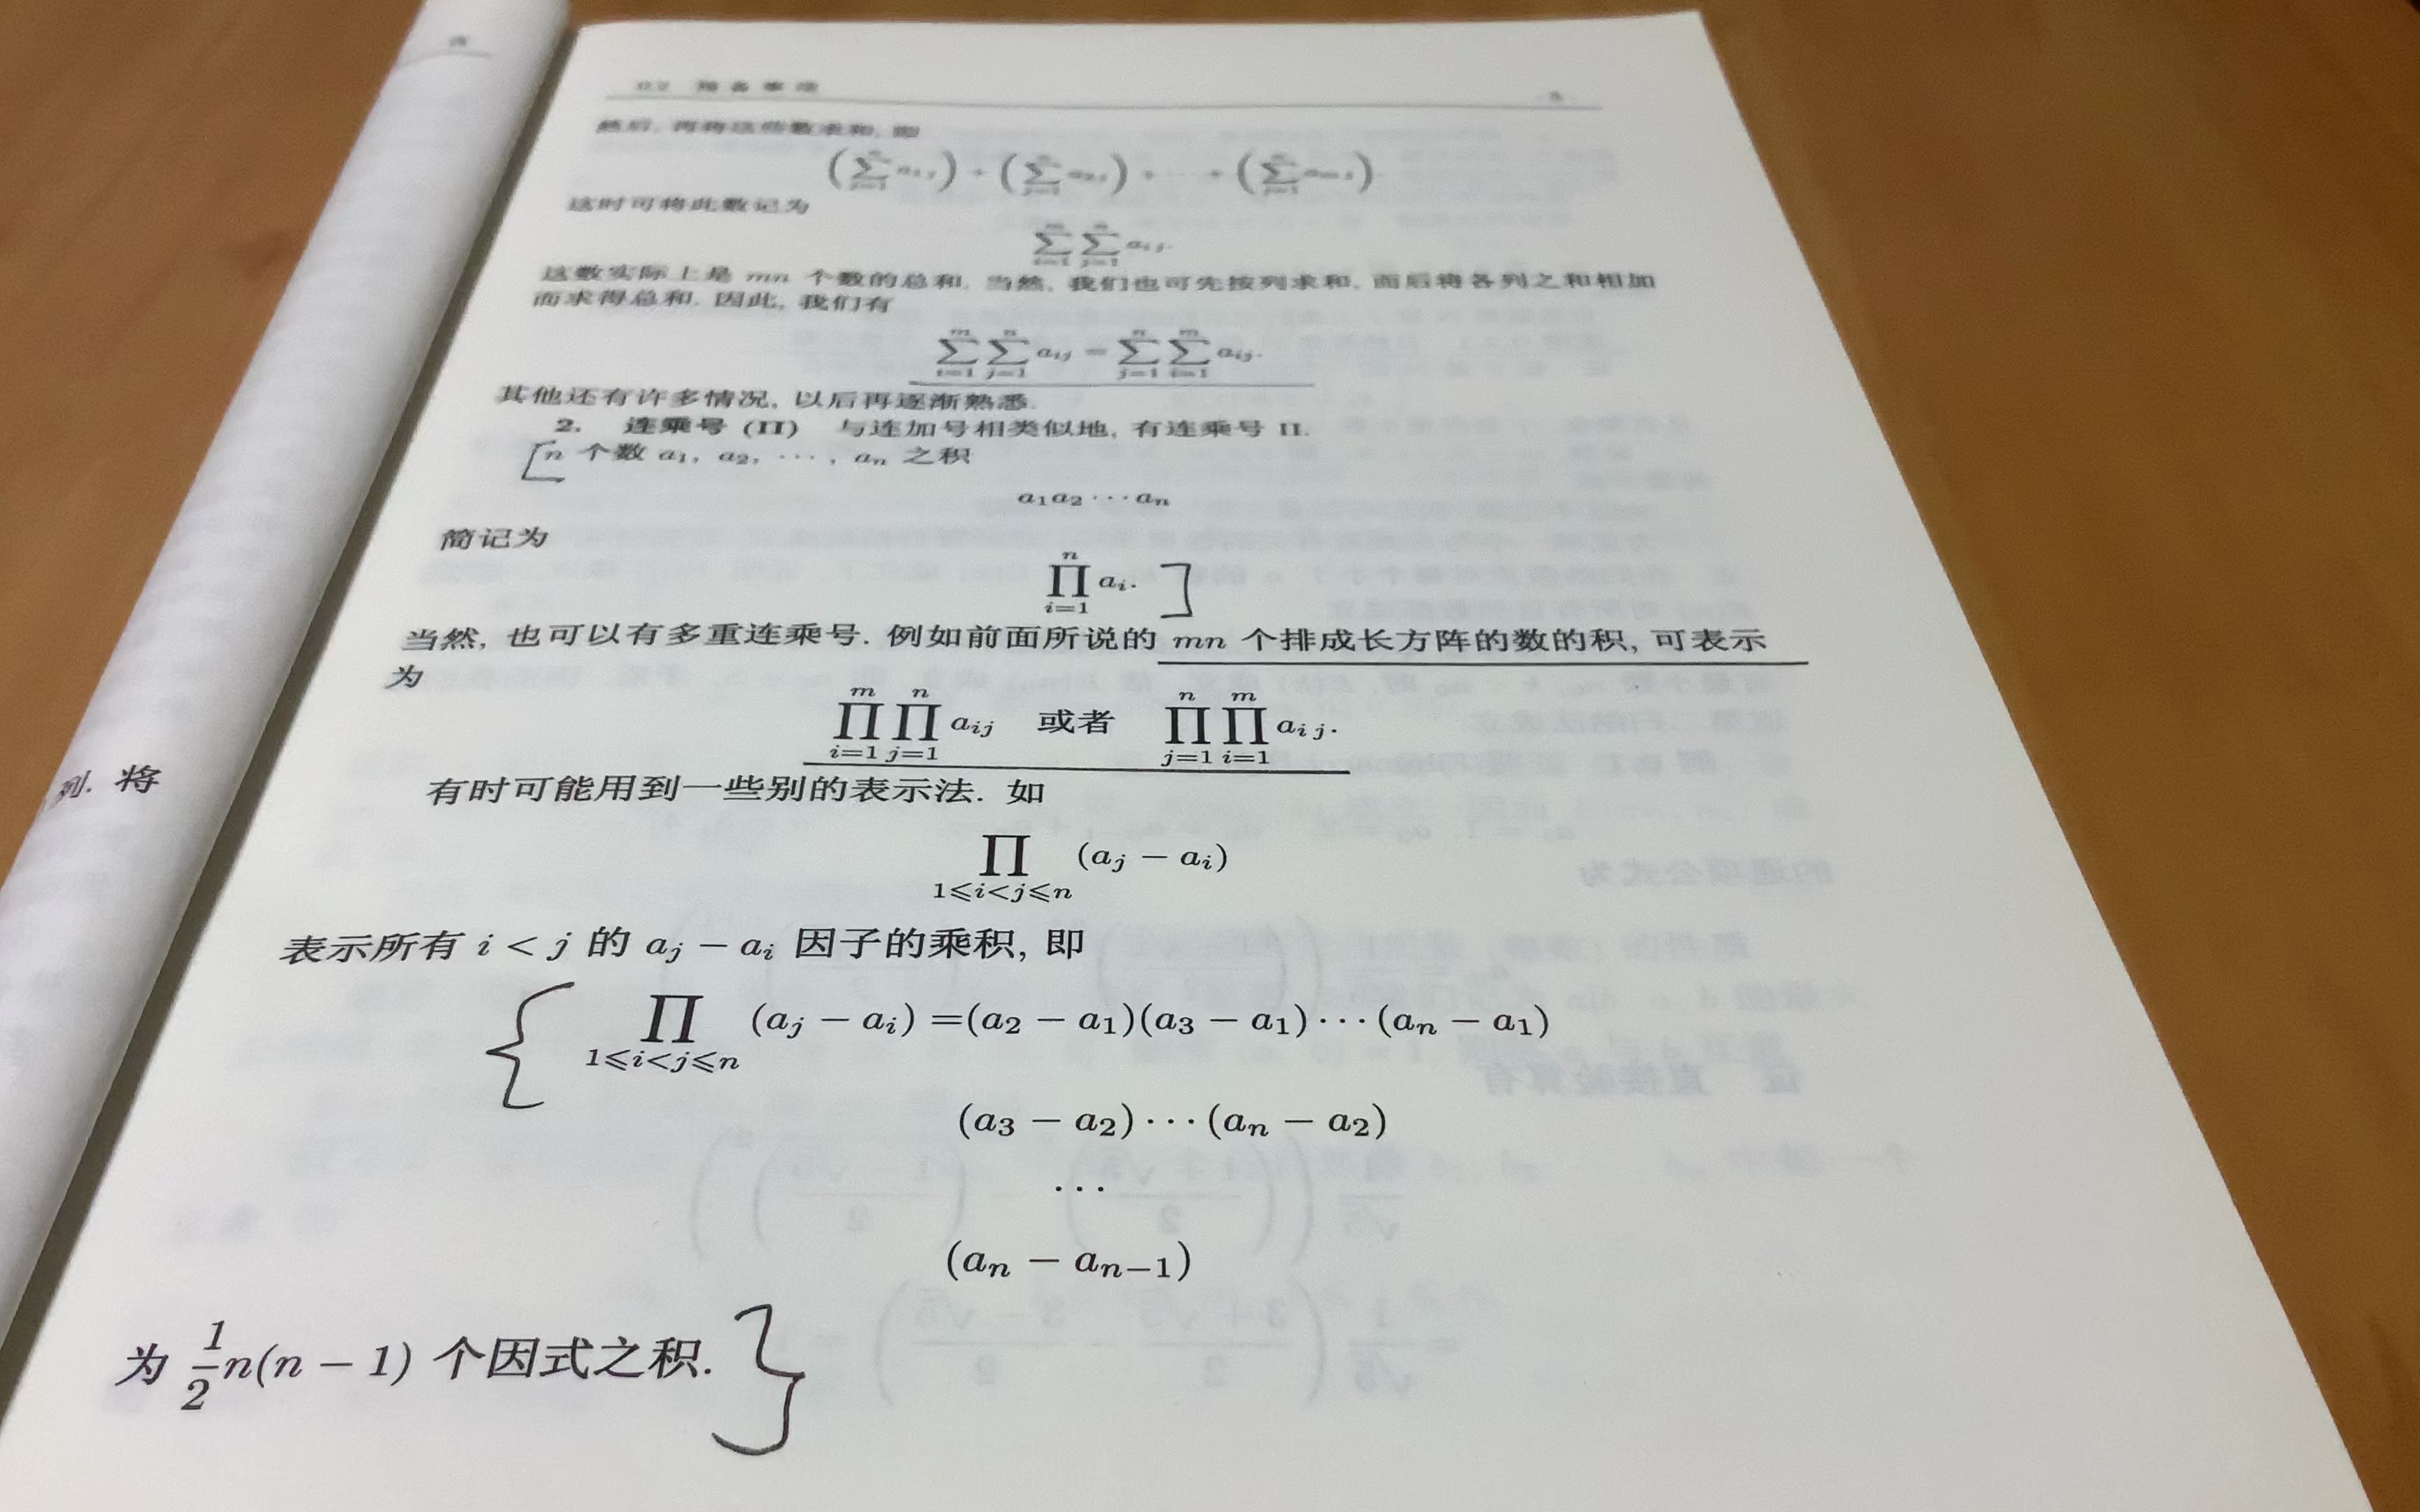 0.2 预备事项
然后, 再将这些数求和, 即
(∑_{j=1}^{n} a_{1j}) + (∑_{j=1}^{n} a_{2j}) + ⋯ + (∑_{j=1}^{n} a_{mj}).
这时可将此数记为
∑_{i=1}^{m} ∑_{j=1}^{n} a_{ij}.
这数实际上是 mn 个数的总和. 当然, 我们也可先按列求和, 而后将各列之和相加
而求得总和. 因此, 我们有
∑_{i=1}^{m} ∑_{j=1}^{n} a_{ij} = ∑_{j=1}^{n} ∑_{i=1}^{m} a_{ij}.
其他还有许多情况, 以后再逐渐熟悉.
2. 连乘号 (Π) 与连加号相类似地, 有连乘号 Π.
[n 个数 a₁, a₂, ⋯, aₙ 之积
a₁a₂⋯aₙ
简记为
∏_{i=1}^{n} a_i. ]
当然, 也可以有多重连乘号. 例如前面所说的 mn 个排成长方阵的数的积, 可表示
为
∏_{i=1}^{m} ∏_{j=1}^{n} a_{ij} 或者 ∏_{j=1}^{n} ∏_{i=1}^{m} a_{ij}.
列. 将
有时可能用到一些别的表示法. 如
∏_{1⩽i<j⩽n} (a_j − a_i)
表示所有 i < j 的 a_j − a_i 因子的乘积, 即
{ ∏_{1⩽i<j⩽n} (a_j − a_i) =(a₂ − a₁)(a₃ − a₁)⋯(aₙ − a₁)
(a₃ − a₂)⋯(aₙ − a₂)
⋯
(aₙ − a_{n−1})
为 \frac{1}{2}n(n − 1) 个因式之积. }